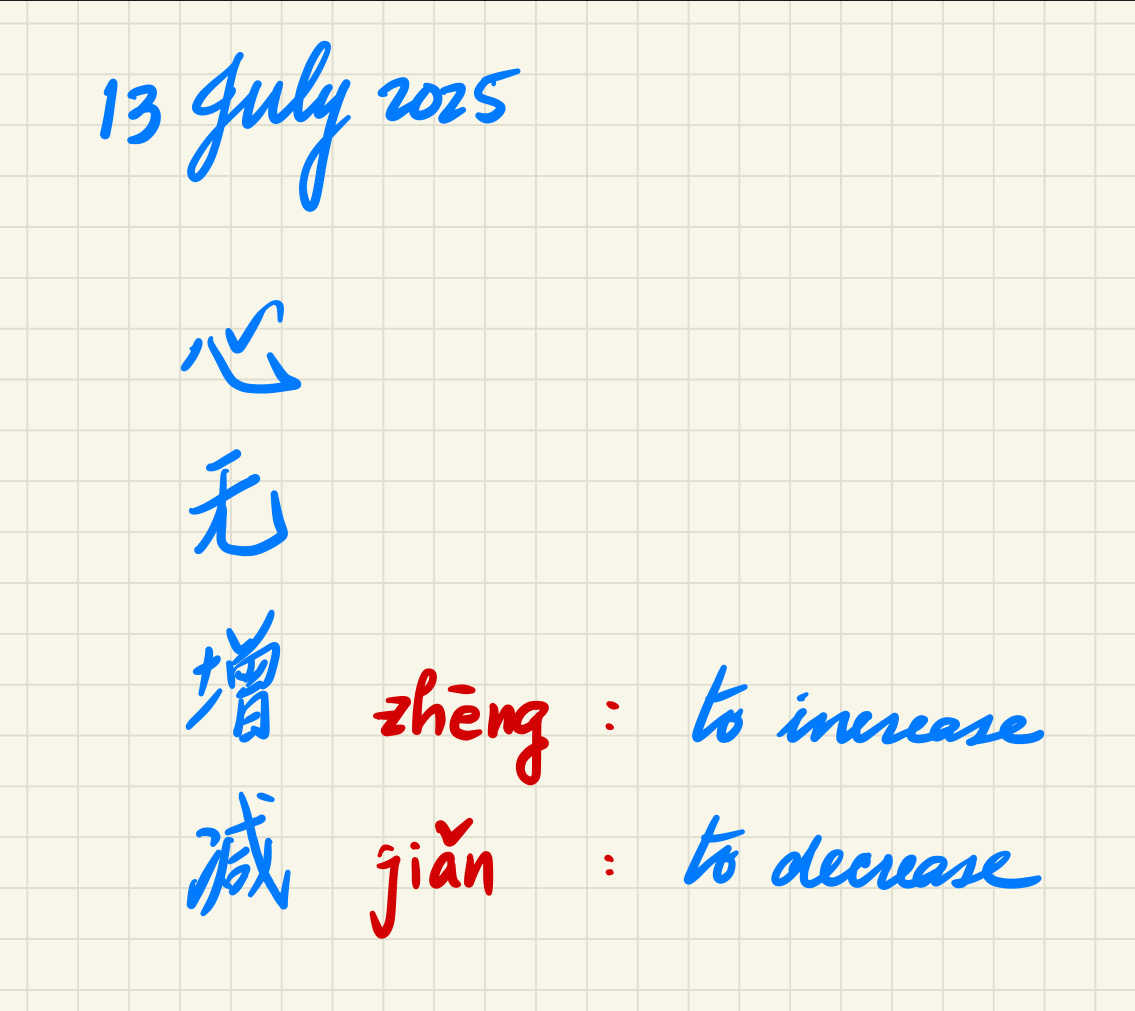 13 July 2025
心
无
增 zhēng : to increase
减 jiǎn : to decrease